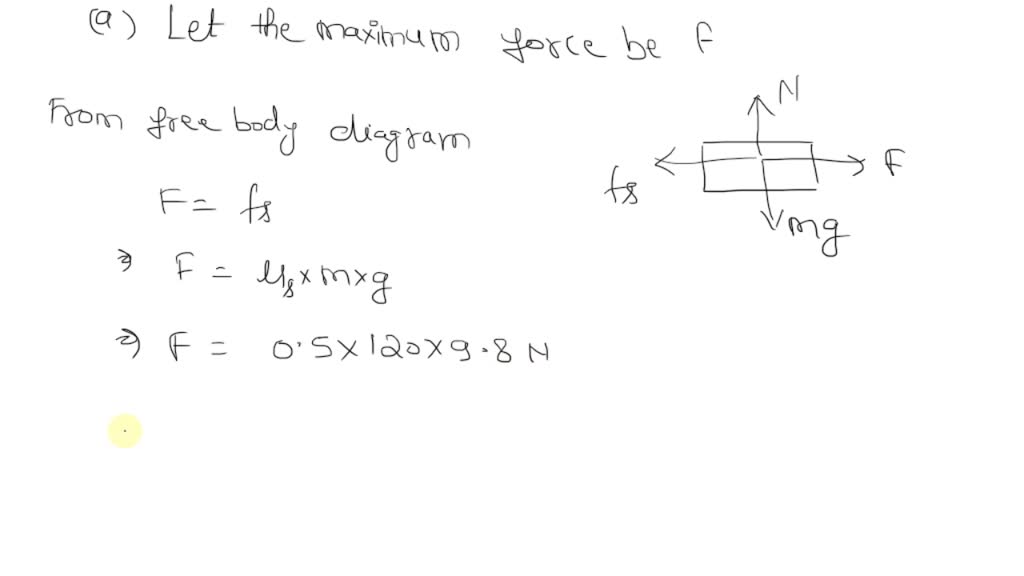 (a) Let the maximum force be F
From free body diagram
N
fs
F
mg
F = fs
⇒ F = μs × m × g
⇒ F = 0.5 × 120 × 9.8 N